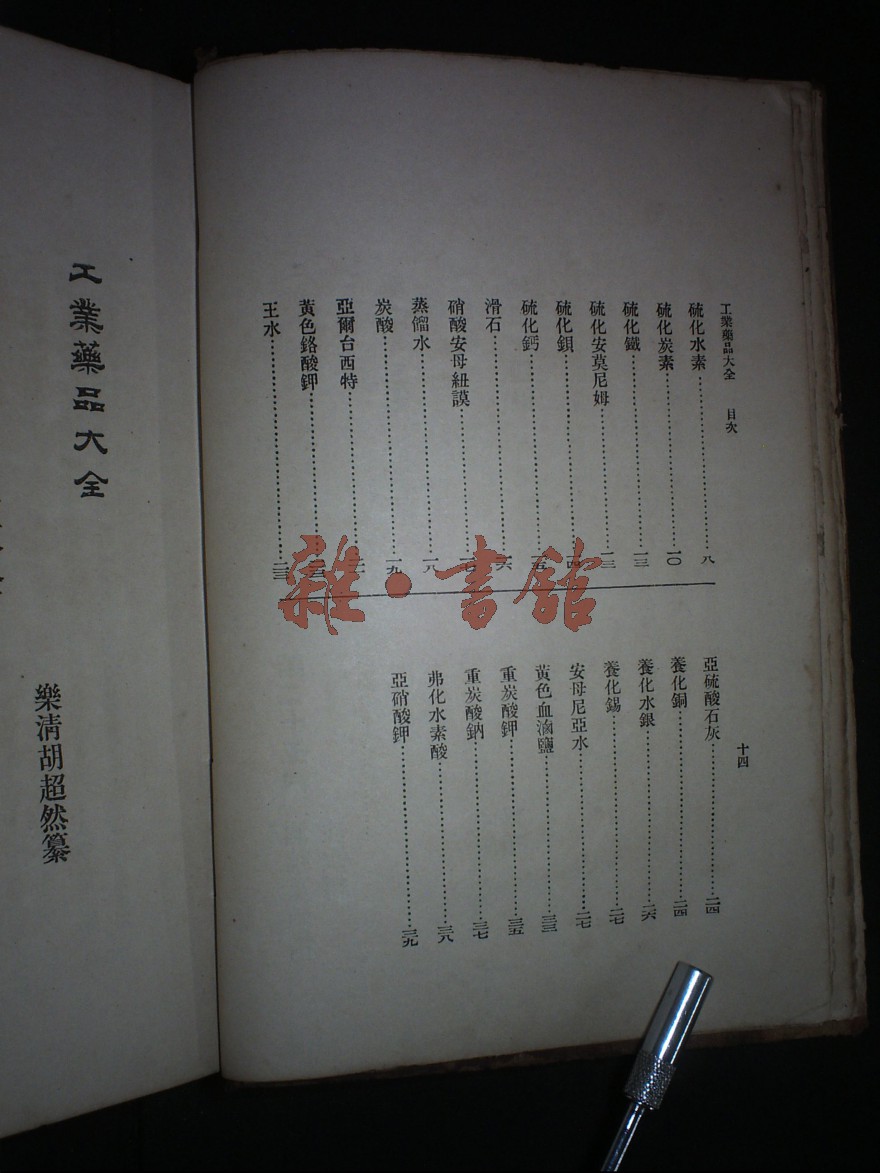 工業藥品大全 目次 十四
硫化水素 八
硫化炭素 一〇
硫化鐵 一三
硫化安莫尼姆 一三
硫化鋇 一四
硫化鈣 一五
滑石 一六
硝酸安母紐謨
蒸餾水 一八
炭酸 一九
亞爾台西特
黃色鉻酸鉀
王水
亞硫酸石灰 二四
養化銅 二四
養化水銀 二六
養化錫 二七
安母尼亞水 二七
黃色血滷鹽 三三
重炭酸鉀 三五
重炭酸鈉 三七
弗化水素酸 三八
亞硝酸鉀 三九
工業藥品大全
樂清胡超然纂
雜·書館